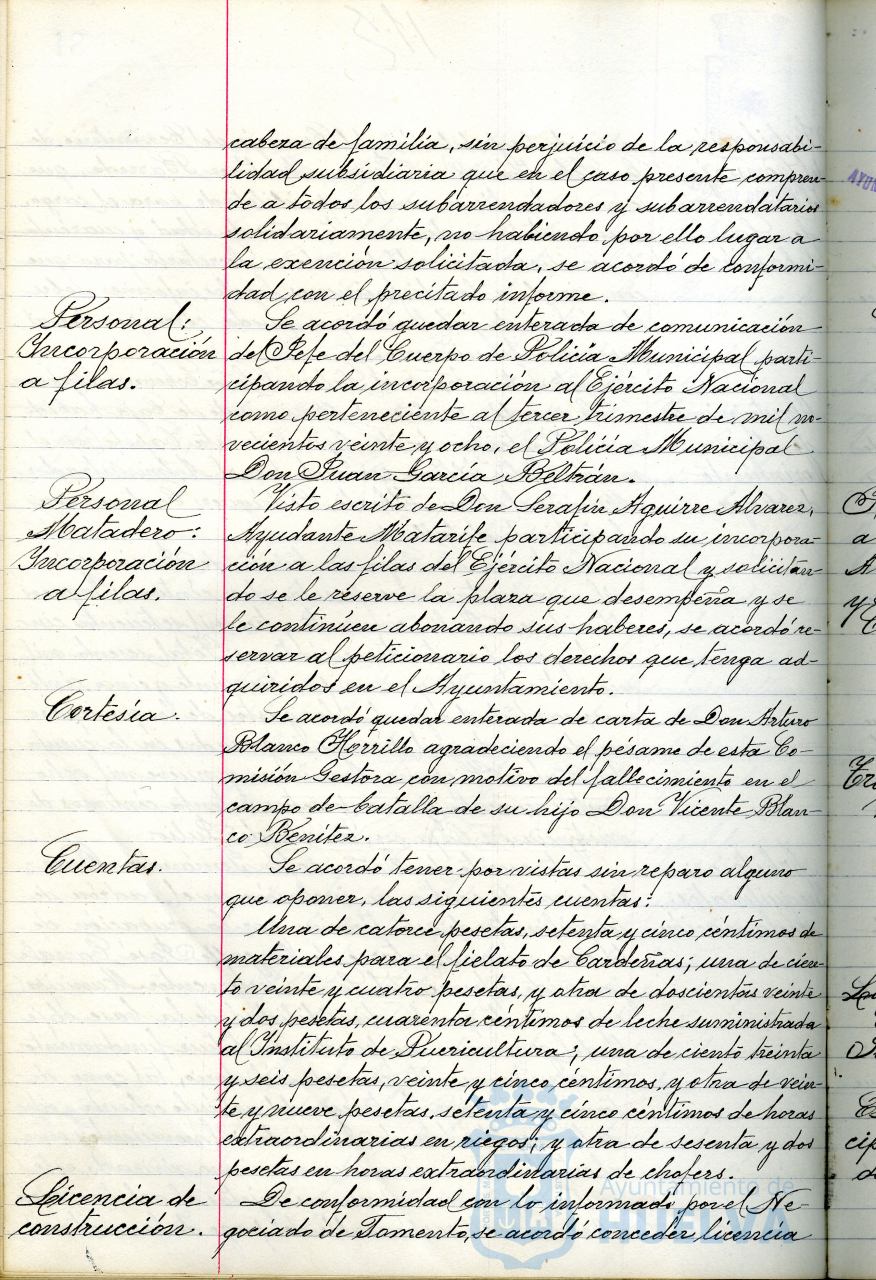 cabeza de familia, sin perjuicio de la responsabi-
lidad subsidiaria que en el caso presente compren-
de a todos los subarrendadores y subarrendatarios
solidariamente, no habiendo por ello lugar a
la exención solicitada, se acordó de conformi-
dad con el precitado informe.
Personal:
Incorporación
a filas.
Se acordó quedar enterada de comunicación
del Jefe del Cuerpo de Policía Municipal parti-
cipando la incorporación al Ejército Nacional
como perteneciente al tercer trimestre de mil no-
vecientos veinte y ocho, el Policía Municipal
Don Juan García Beltrán.
Personal
Matadero:
Incorporación
a filas.
Visto escrito de Don Serafín Aguirre Alvarez,
Ayudante Matarife participando su incorpora-
ción a las filas del Ejército Nacional y solicitan-
do se le reserve la plaza que desempeña y se
le continúen abonando sus haberes, se acordó re-
servar al peticionario los derechos que tenga ad-
quiridos en el Ayuntamiento.
Cortesía.
Se acordó quedar enterada de carta de Don Arturo
Blanco Horrillo agradeciendo el pésame de esta Co-
misión Gestora con motivo del fallecimiento en el
campo de batalla de su hijo Don Vicente Blan-
co Benítez.
Cuentas.
Se acordó tener por vistas sin reparo alguno
que oponer, las siguientes cuentas:
Una de catorce pesetas, setenta y cinco céntimos de
materiales para el fielato de Cardeñas; una de cien-
to veinte y cuatro pesetas, y otra de doscientas veinte
y dos pesetas, cuarenta céntimos de leche suministrada
al Instituto de Puericultura; una de ciento treinta
y seis pesetas, veinte y cinco céntimos, y otra de vein-
te y nueve pesetas, setenta y cinco céntimos de horas
extraordinarias en riegos; y otra de sesenta y dos
pesetas en horas extraordinarias de chofers.
Licencia de
construcción.
De conformidad con lo informado por el Ne-
gociado de Fomento, se acordó conceder licencia
Ayuntamiento de
HUELVA